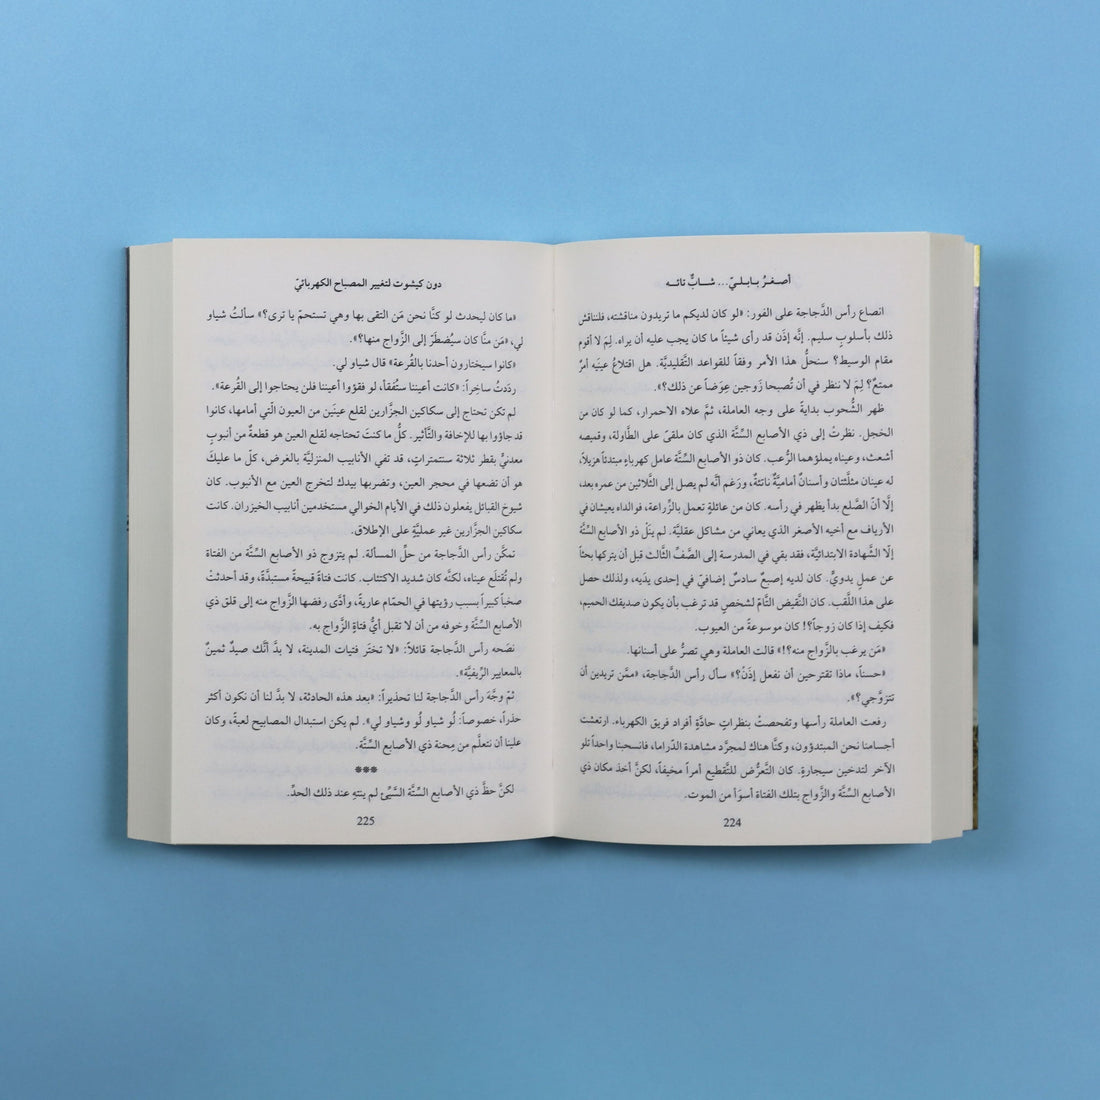 أصغرُ بـابـلـيّ... شـــابٌّ تائــه
انصاع رأس الدَّجاجة على الفور: «لو كان لديكم ما تريدون مناقشته، فلنناقش
ذلك بأسلوبٍ سليم. إنَّه إذَن قد رأى شيئاً ما كان يجب عليه أن يراه. لِمَ لا أقوم
مقام الوسيط؟ سنحلُّ هذا الأمر وفقاً للقواعد التَّقليديَّة. هل اقتلاعُ عينَيه أمرٌ
ممتعٌ؟ لِمَ لا ننظر في أن تُصبحا زَوجين عِوَضاً عن ذلك؟».
ظهر الشُّحوب بدايةً على وجه العاملة، ثمَّ علاه الاحمرار، كما لو كان من
الخجل. نظرتْ إلى ذي الأصابع السِّتَّة الذي كان ملقىً على الطَّاولة، وقميصه
أشعث، وعيناه يملؤهما الرُّعب. كان ذو الأصابع السِّتَّة عامل كهرباءٍ مبتدئاً هزيلاً،
له عينان مثلَّثتان وأسنانٌ أماميَّةٌ ناتئةٌ، ورَغم أنَّه لم يصل إلى الثَّلاثين من عمره بعد،
إلَّا أنَّ الصَّلع بدأ يظهر في رأسه. كان من عائلةٍ تعمل بالزِّراعة، فوالداه يعيشان في
الأرياف مع أخيه الأصغر الذي يعاني من مشاكل عقليَّة. لم ينَلْ ذو الأصابع السِّتَّة
إلَّا الشَّهادة الابتدائيَّة، فقد بقي في المدرسة إلى الصَّفِّ الثَّالث قبل أن يتركها بحثاً
عن عملٍ يدويٍّ. كان لديه إصبعٌ سادسٌ إضافيٌّ في إحدى يدَيه، ولذلك حصل
على هذا اللَّقب. كان النَّقيض التَّامّ لشخصٍ قد ترغب بأن يكون صديقك الحميم،
فكيف إذا كان زوجاً؟! كان موسوعةً من العيوب.
«مَن يرغب بالزَّواج منه؟!» قالت العاملة وهي تصرُّ على أسنانها.
«حسناً، ماذا تقترحين أن نفعل إذَنْ؟» سأل رأس الدَّجاجة، «ممَّن تريدين أن
تتزوَّجي؟».
رفعت العاملة رأسها وتفحصتْ بنظراتٍ حادَّةٍ أفراد فريق الكهرباء. ارتعشت
أجسامنا نحن المبتدؤون، وكنَّا هناك لمجرَّد مشاهدة الدّراما، فانسحبنا واحداً تلو
الآخر لتدخين سيجارةٍ. كان التَّعرُّض للتَّقطيع أمراً مخيفاً، لكنَّ أخذ مكان ذي
الأصابع السِّتَّة والزَّواج بتلك الفتاة أسوَأ من الموت.
224
دون كيشوت لتغيير المصباح الكهربائيّ
«ما كان ليحدث لو كنَّا نحن مَن التقى بها وهي تستحمّ يا ترى؟» سألتُ شياو
لي، «مَن منَّا كان سيُضطَرّ إلى الزَّواج منها؟».
«كانوا سيختارون أحدنا بالقُرعة» قال شياو لي.
ردَدتُ ساخِراً: «كانت أعيننا ستُفقأ، لو فقؤوا أعيننا فلن يحتاجوا إلى القُرعة».
لم تكن تحتاج إلى سكاكين الجزَّارين لقلع عينَين من العيون الَّتي أمامها، كانوا
قد جاؤوا بها للإخافة والتَّأثير. كلُّ ما كنتَ تحتاجه لقلع العين هو قطعةٌ من أنبوبٍ
معدنيٍّ بقطر ثلاثة سنتمتراتٍ، قد تفي الأنابيب المنزليَّة بالغرض، كلّ ما عليكَ
هو أن تضعها في محجر العين، وتضربها بيدك لتخرج العين مع الأنبوب. كان
شيوخ القبائل يفعلون ذلك في الأيام الخوالي مستخدمين أنابيب الخيزران. كانت
سكاكين الجزَّارين غير عمليَّةٍ على الإطلاق.
تمكَّن رأس الدَّجاجة من حلِّ المسألة. لم يتزوج ذو الأصابع السِّتَّة من الفتاة
ولم تُقتلَع عيناه، لكنَّه كان شديد الاكتئاب. كانت فتاةً قبيحةً مستبدَّةً، وقد أحدثتْ
صخباً كبيراً بسبب رؤيتها في الحمّام عاريةً، وأدَّى رفضها الزَّواج منه إلى قلق ذي
الأصابع السِّتَّة وخوفه من أن لا تقبل أيُّ فتاةٍ الزَّواج به.
نصَحه رأس الدَّجاجة قائلاً: «لا تختَر فتيات المدينة، لا بدَّ أنَّك صيدٌ ثمينٌ
بالمعايير الرِّيفيَّة».
ثمّ وجَّه رأس الدَّجاجة لنا تحذيراً: «بعد هذه الحادثة، لا بدَّ لنا أن نكون أكثر
حذراً، خصوصاً: لُو شياو لُو وشياو لي». لم يكن استبدال المصابيح لعبةً، وكان
علينا أن نتعلَّم من مِحنة ذي الأصابع السِّتَّة.
***
لكنَّ حظَّ ذي الأصابع السِّتَّة السَّيِّئ لم ينتهِ عند ذلك الحدِّ.
225